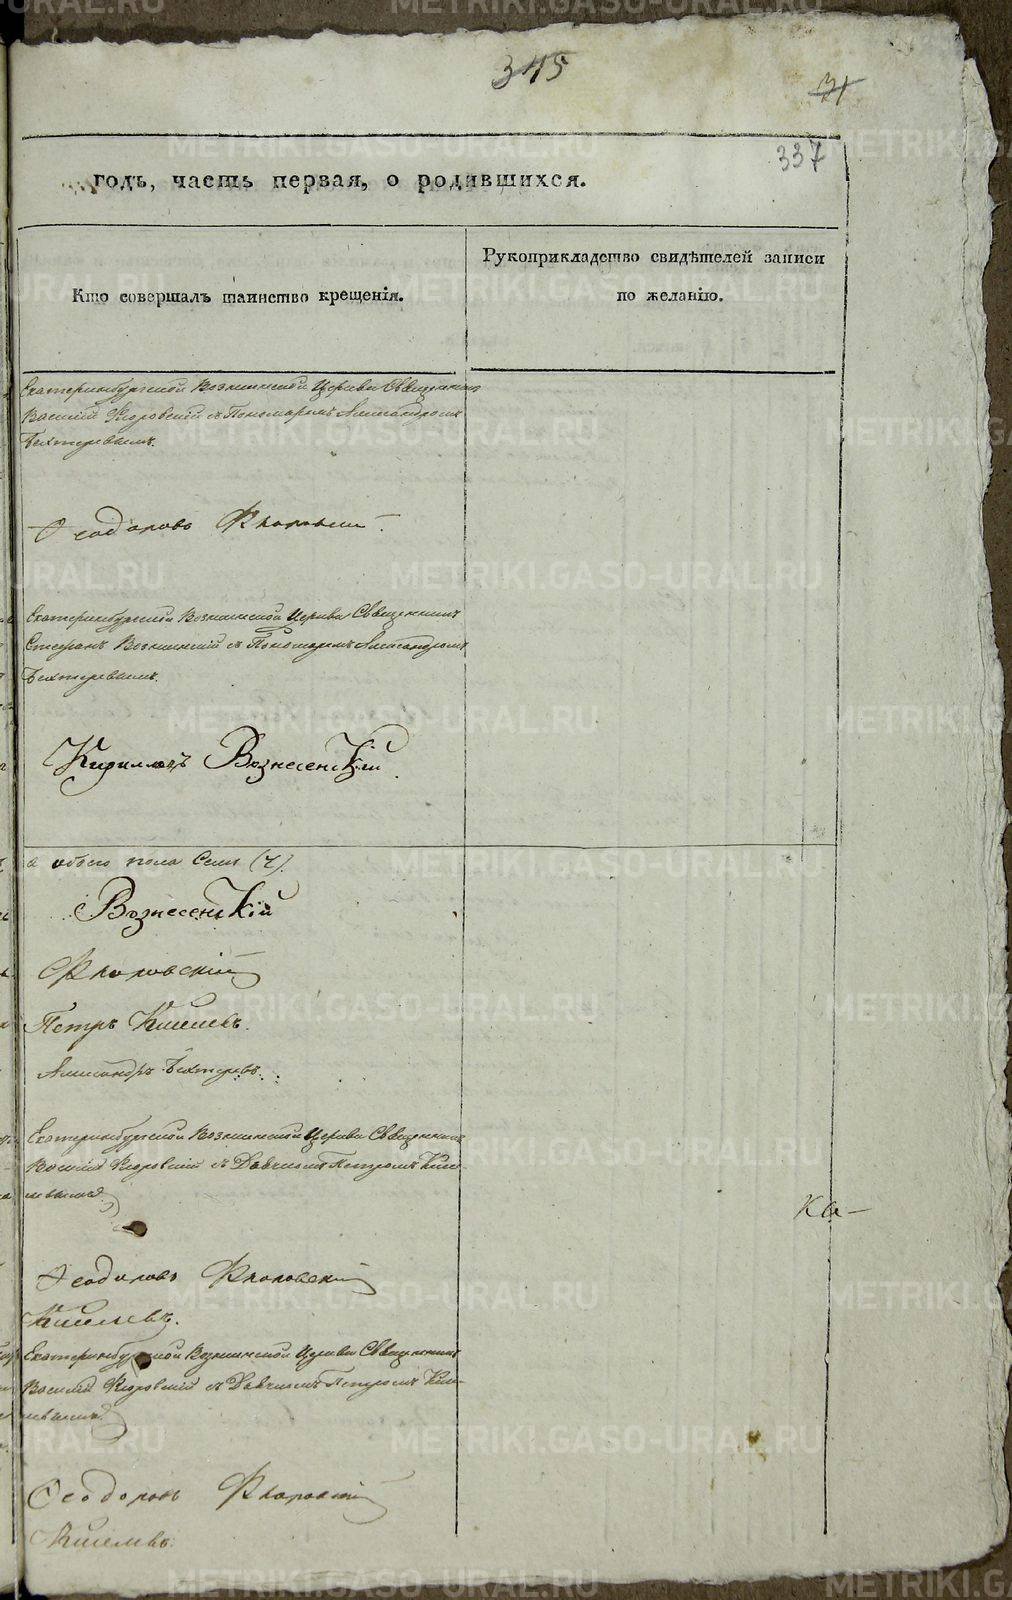 345
31
337
годъ, часть первая, о родившихся.
Кто совершалъ таинство крещенія.
Рукоприкладство свидѣтелей записи
по желанію.
Екатеринбургской Вознесенской Церкви Священникъ
Василій Флоровскій съ Пономаремъ Александромъ
Бехтеревымъ.
Ѳеодоровъ Флоровскій.
Екатеринбургской Вознесенской Церкви Священникъ
Стефанъ Вознесенскій съ Пономаремъ Александромъ
Бехтеревымъ.
Кирилловъ Вознесенскій.
а обоего пола Семь (7).
Вознесенскій
Флоровскій
Петръ Киселевъ.
Александръ Бехтеревъ.
Екатеринбургской Вознесенской Церкви Священникъ
Василій Флоровскій съ Дьячкомъ Петромъ Кисе-
левымъ.
Ка-
Ѳеодоровъ Флоровскій
Киселевъ.
Екатеринбургской Вознесенской Церкви Священникъ
Василій Флоровскій съ Дьячкомъ Петромъ Кисе-
левымъ.
Ѳеодоровъ Флоровскій
Киселевъ.
METRIKI.GASO-URAL.RU